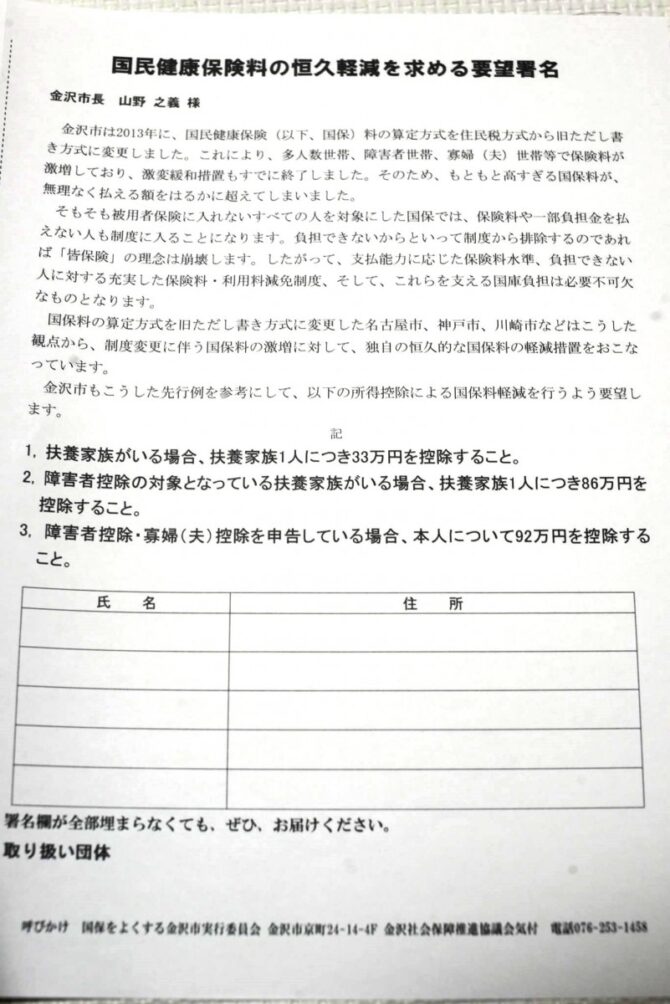 国民健康保険料の恒久軽減を求める要望署名
金沢市長　山野 之義 様
金沢市は2013年に、国民健康保険（以下、国保）料の算定方式を住民税方式から旧ただし書
き方式に変更しました。これにより、多人数世帯、障害者世帯、寡婦（夫）世帯等で保険料が
激増しており、激変緩和措置もすでに終了しました。そのため、もともと高すぎる国保料が、
無理なく払える額をはるかに超えてしまいました。
そもそも被用者保険に入れないすべての人を対象にした国保では、保険料や一部負担金を払
えない人も制度に入ることになります。負担できないからといって制度から排除するのであれ
ば「皆保険」の理念は崩壊します。したがって、支払能力に応じた保険料水準、負担できない
人に対する充実した保険料・利用料減免制度、そして、これらを支える国庫負担は必要不可欠
なものとなります。
国保料の算定方式を旧ただし書き方式に変更した名古屋市、神戸市、川崎市などはこうした
観点から、制度変更に伴う国保料の激増に対して、独自の恒久的な国保料の軽減措置をおこな
っています。
金沢市もこうした先行例を参考にして、以下の所得控除による国保料軽減を行うよう要望し
ます。
記
1. 扶養家族がいる場合、扶養家族1人につき33万円を控除すること。
2. 障害者控除の対象となっている扶養家族がいる場合、扶養家族1人につき86万円を
控除すること。
3. 障害者控除・寡婦（夫）控除を申告している場合、本人について92万円を控除する
こと。
氏　名　住　所
署名欄が全部埋まらなくても、ぜひ、お届けください。
取り扱い団体
呼びかけ　国保をよくする金沢市実行委員会 金沢市京町24-14-4F 金沢社会保障推進協議会気付　電話076-253-1458